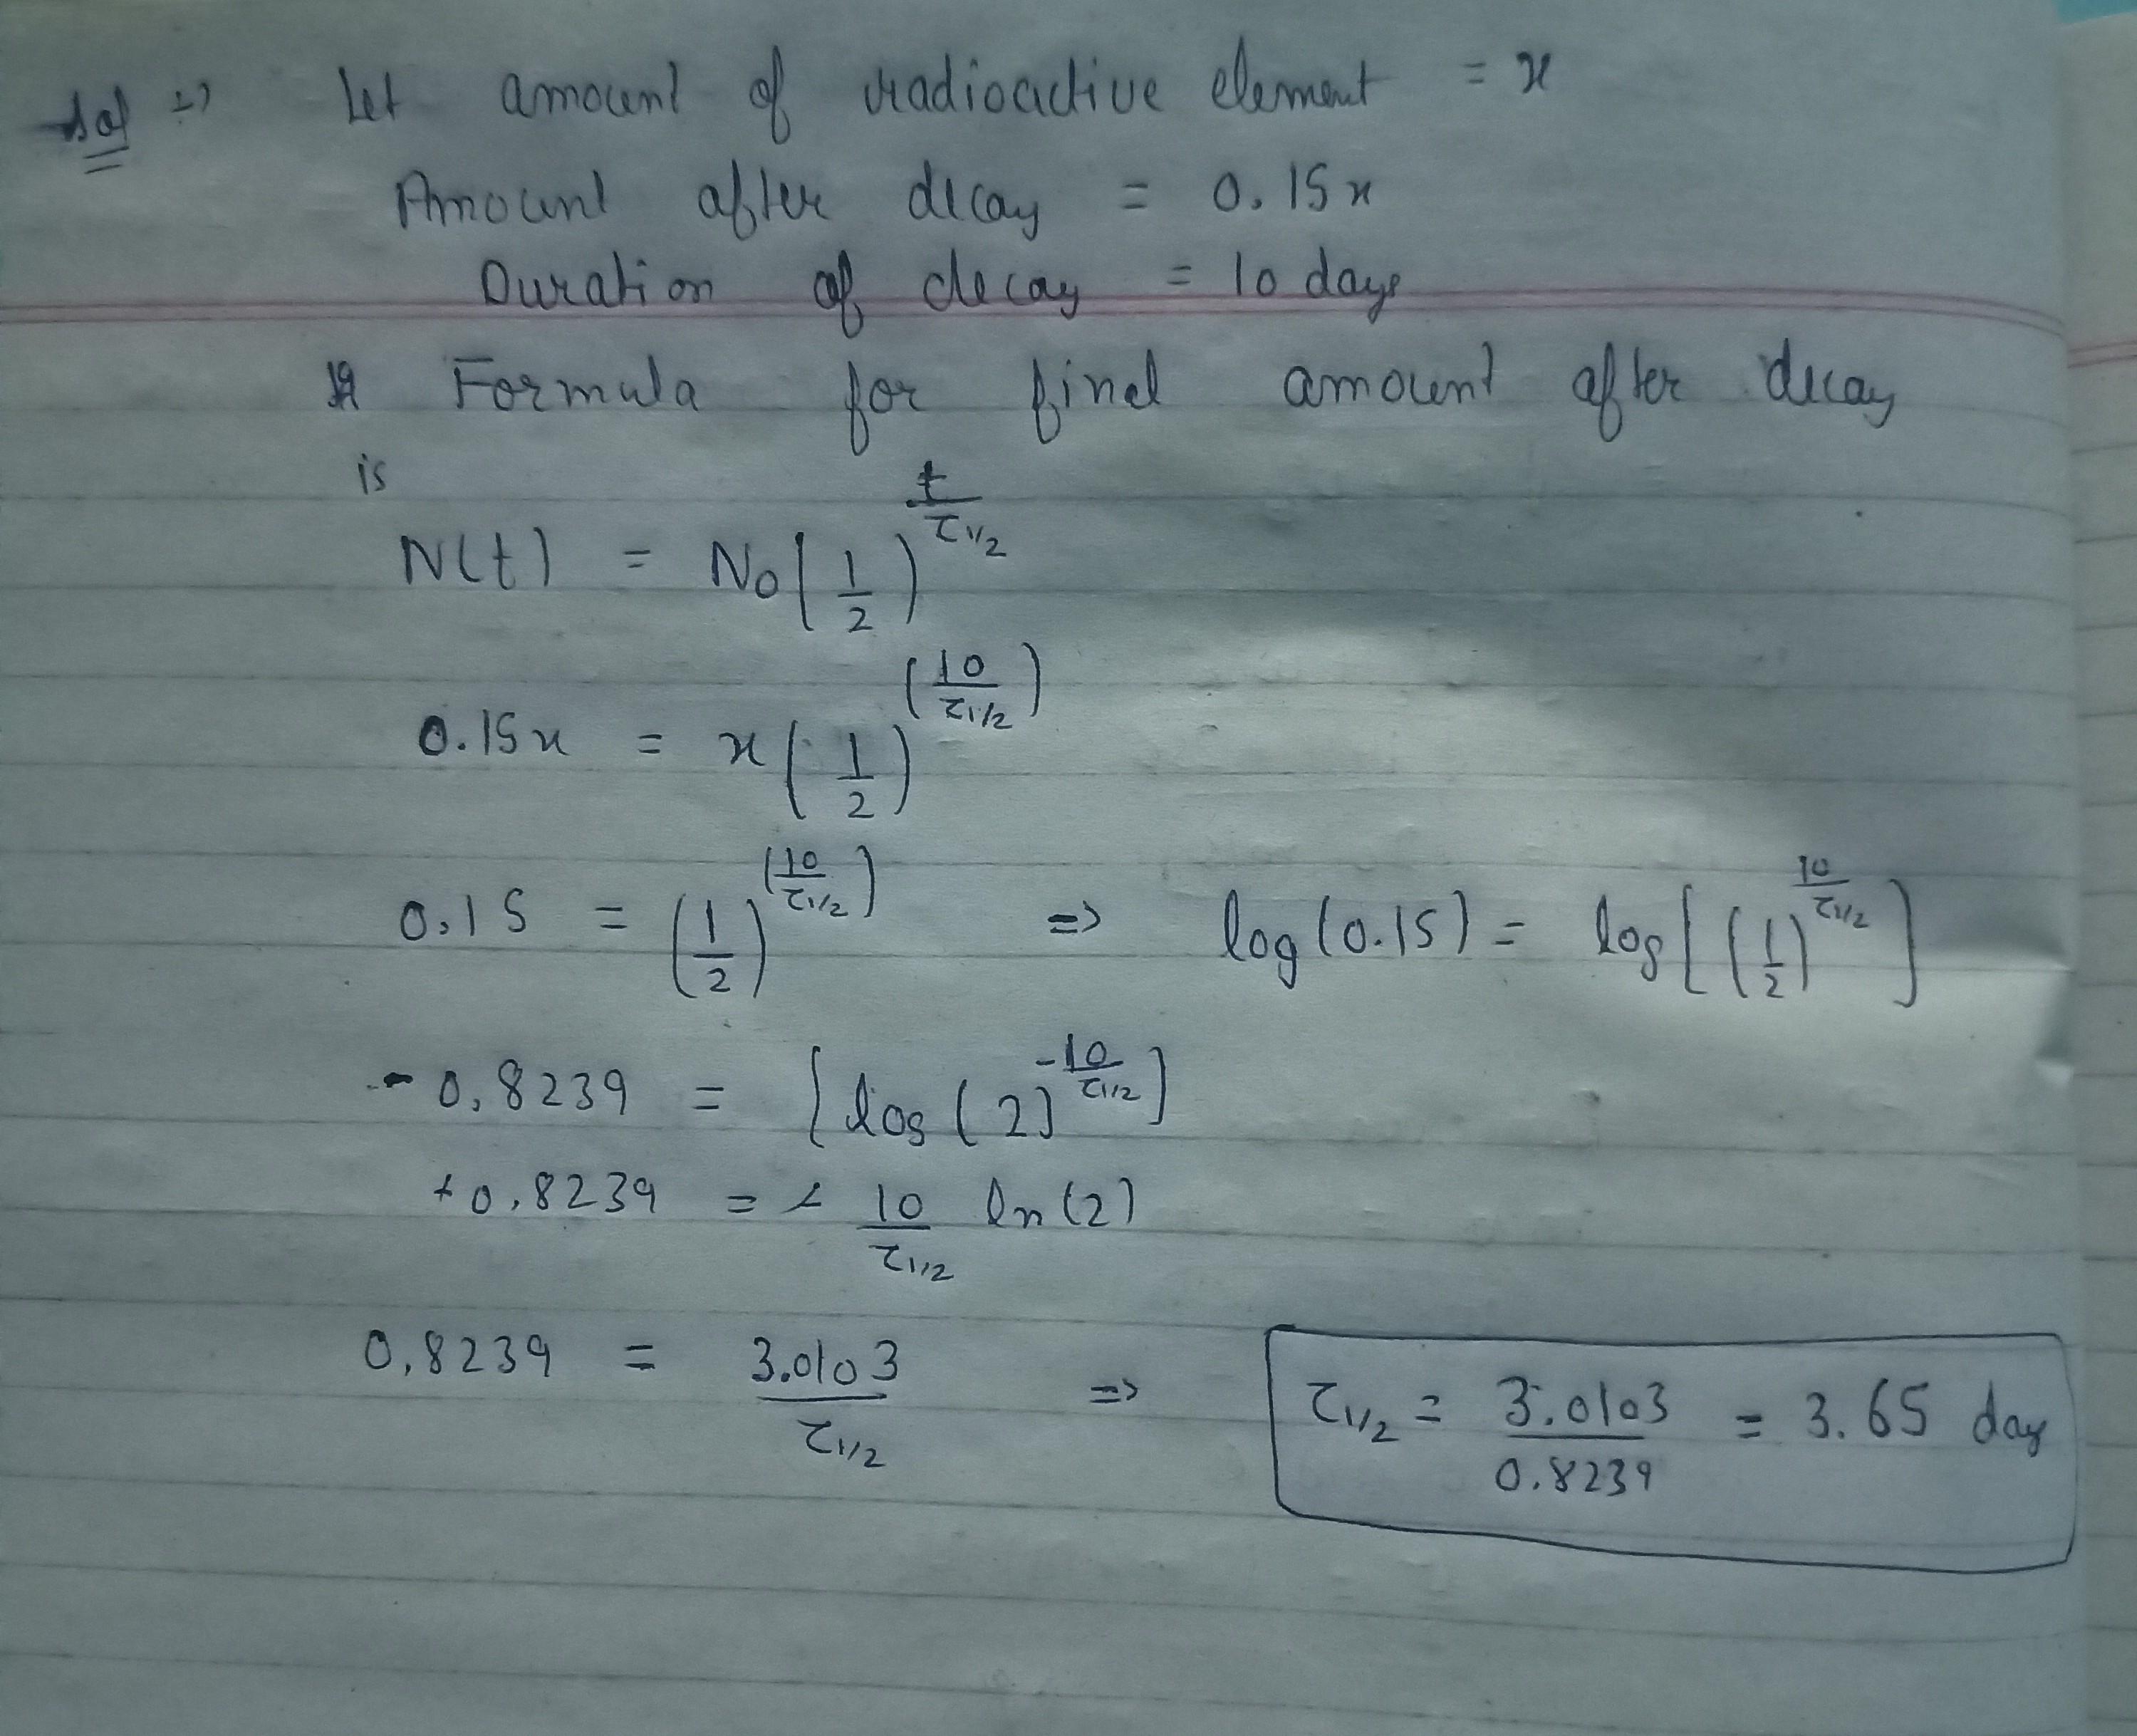 Sol => Let amount of radioactive element = x
Amount after decay = 0.15x
Duration of decay = 10 days
Formula for final amount after decay
is
N(t) = N₀(1/2)^(t/τ1/2)
0.15x = x(1/2)^(10/τ1/2)
0.15 = (1/2)^(10/τ1/2) => log(0.15) = log[(1/2)^(10/τ1/2)]
-0.8239 = [log(2)^(-10/τ1/2)]
+0.8239 = + 10/τ1/2 ln(2)
0.8239 = 3.0103/τ1/2 => τ1/2 = 3.0103/0.8239 = 3.65 day